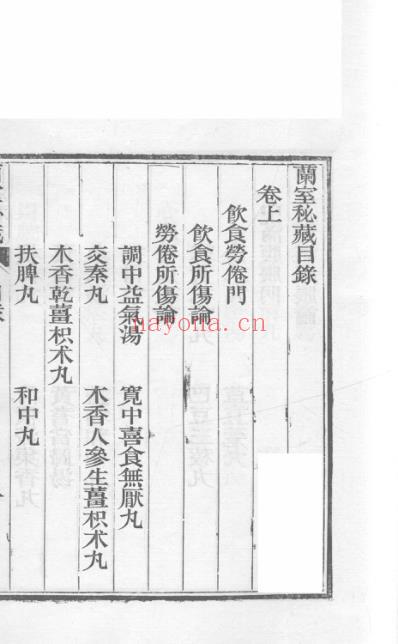 蘭室秘藏目錄
卷上
飲食勞倦門
飲食所傷論
勞倦所傷論
調中益氣湯　寬中喜食無厭丸
交泰丸　木香人參生薑枳术丸
木香乾薑枳术丸
扶脾丸　和中丸
nayona.cn